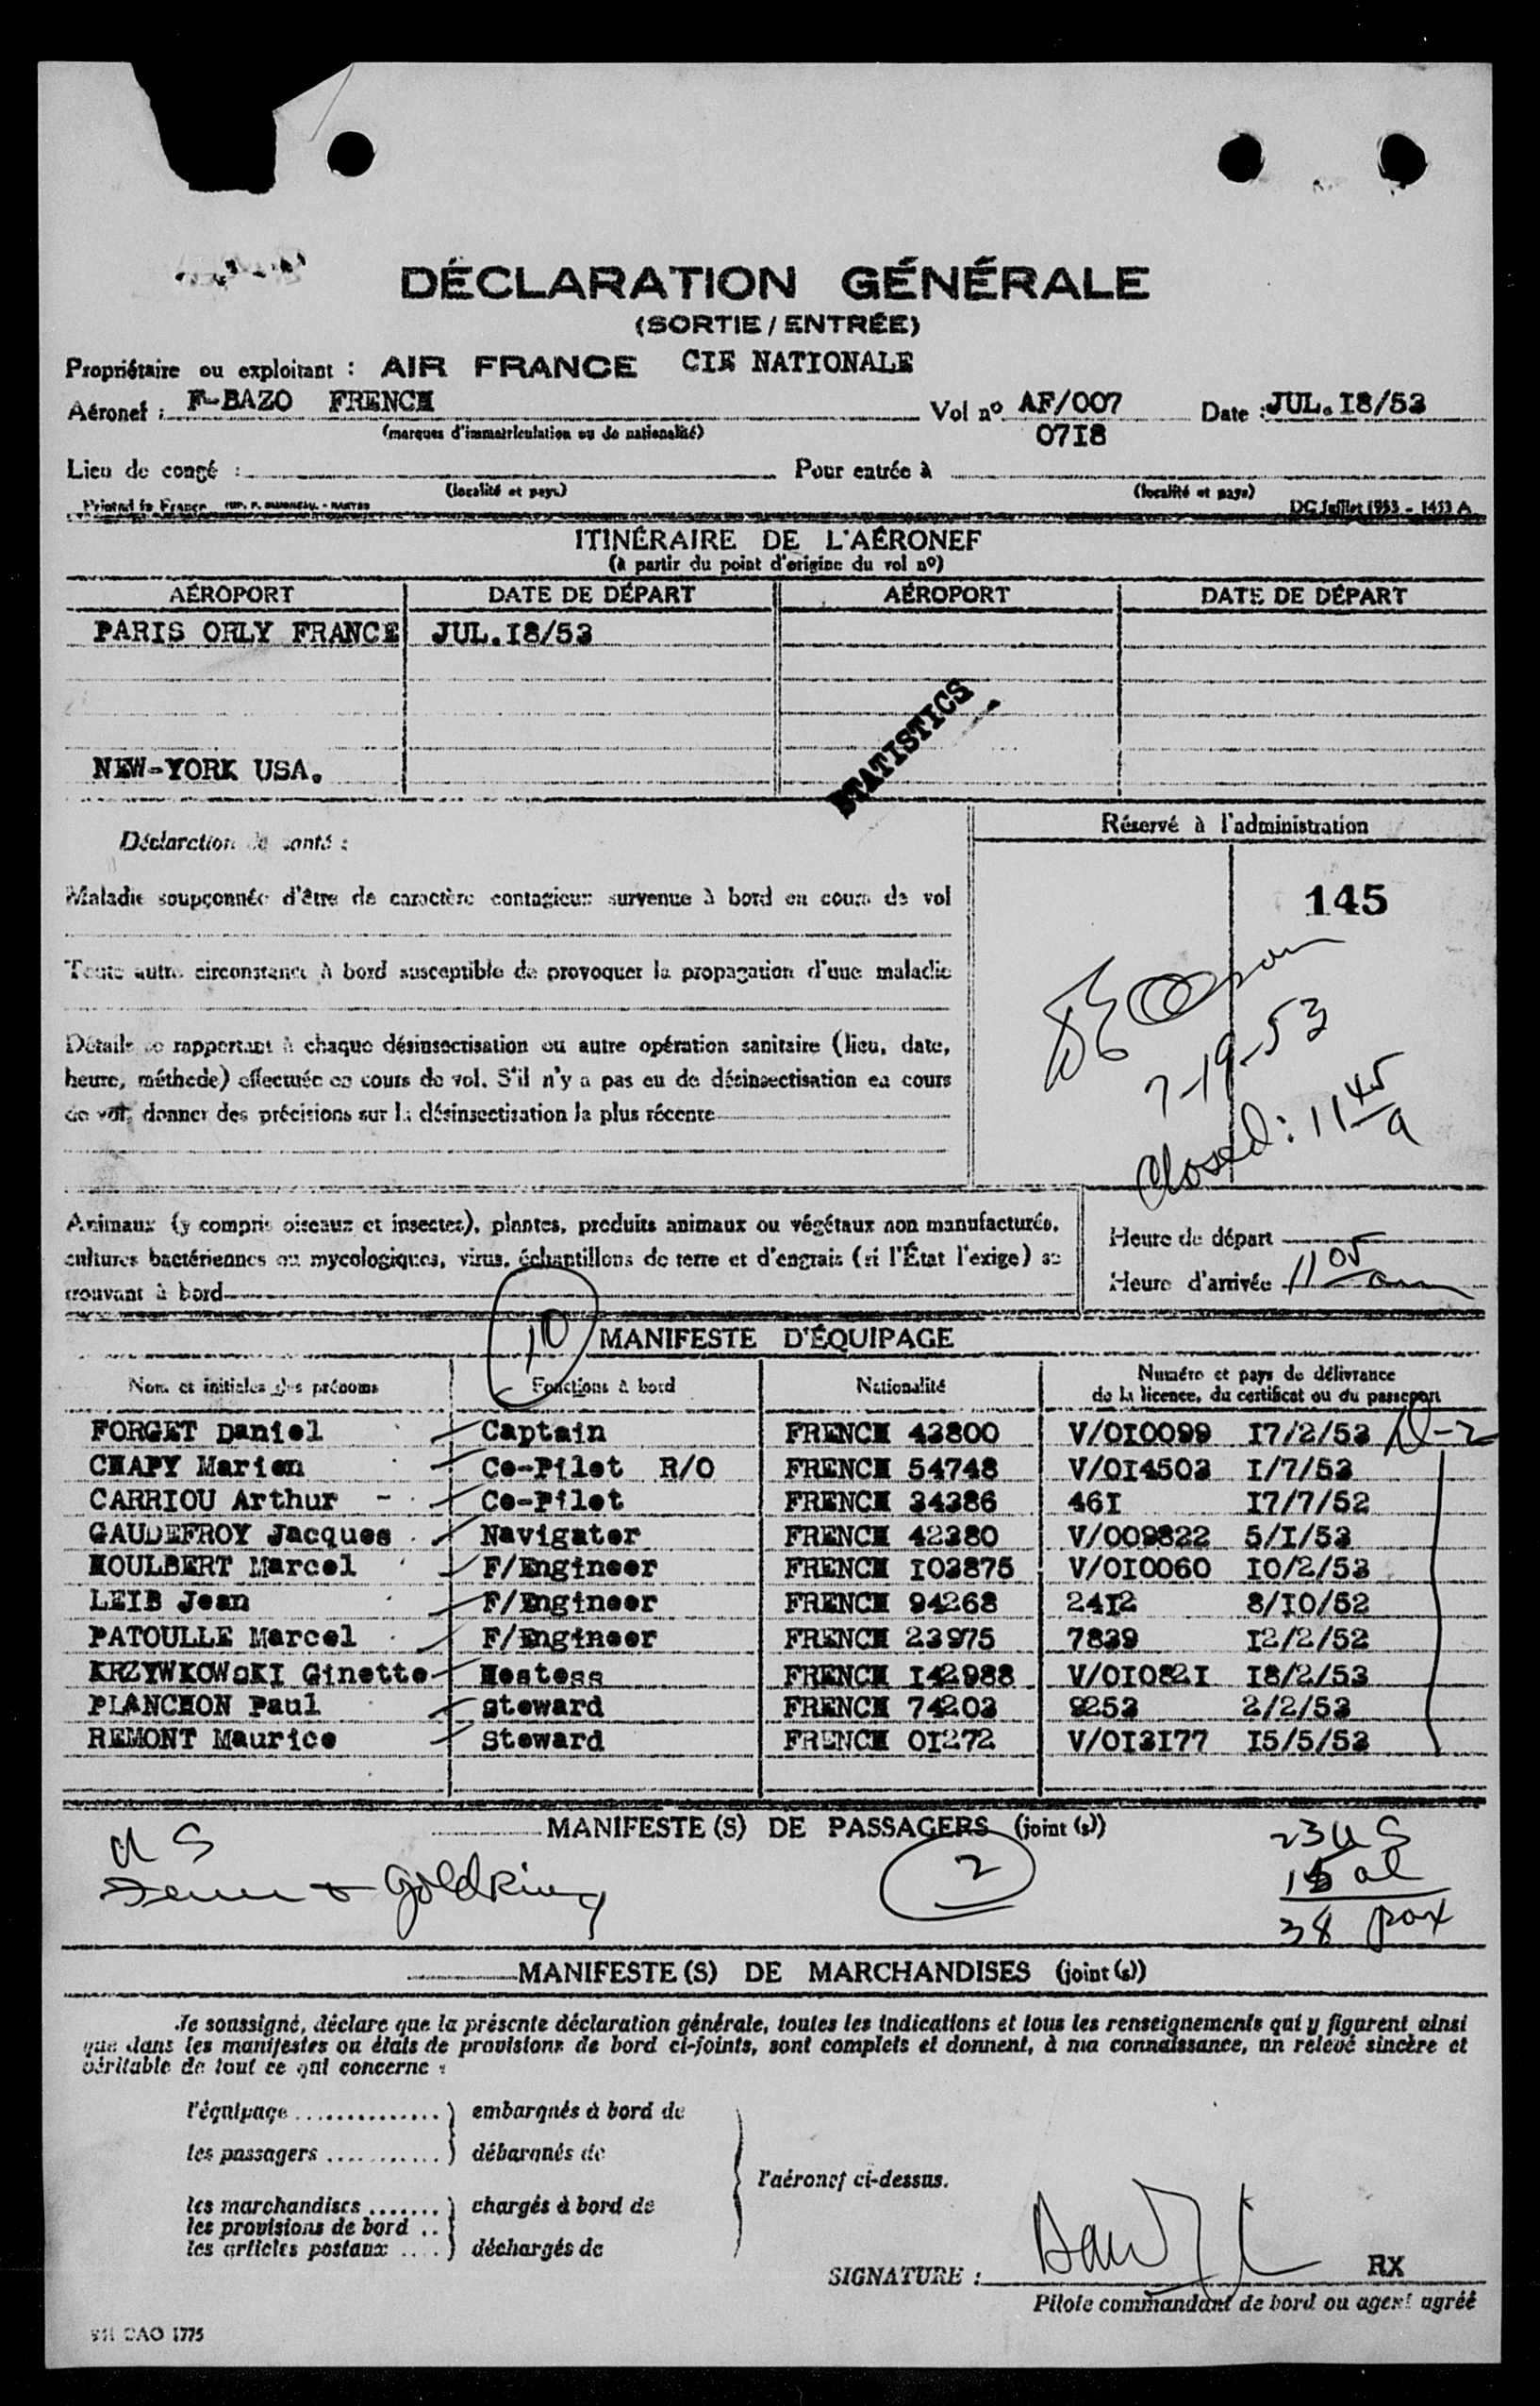 DÉCLARATION GÉNÉRALE
(SORTIE / ENTRÉE)
Propriétaire ou exploitant : AIR FRANCE CIE NATIONALE
Aéronef : F-BAZO FRENCH Vol nº AF/007 Date : JUL.I8/53
(marques d'immatriculation ou de nationalité) 07I8
Lieu de congé : Pour entrée à
(localité et pays) (localité et pays)
Printed in France DC Juillet 1953 - 1453 A
ITINÉRAIRE DE L'AÉRONEF
(à partir du point d'origine du vol nº)
AÉROPORT DATE DE DÉPART AÉROPORT DATE DE DÉPART
PARIS ORLY FRANCE JUL.I8/53
STATISTICS
NEW-YORK USA.
Déclaration de santé :
Réservé à l'administration
145
Maladie soupçonnée d'être de caractère contagieux survenue à bord en cours de vol
Toute autre circonstance à bord susceptible de provoquer la propagation d'une maladie
7-19-53
Closed: 11 45 a
Détails se rapportant à chaque désinsectisation ou autre opération sanitaire (lieu, date,
heure, méthode) effectuée en cours de vol. S'il n'y a pas eu de désinsectisation en cours
de vol, donner des précisions sur la désinsectisation la plus récente
Animaux (y compris oiseaux et insectes), plantes, produits animaux ou végétaux non manufacturés,
cultures bactériennes ou mycologiques, virus, échantillons de terre et d'engrais (si l'État l'exige) se
trouvant à bord
Heure de départ
Heure d'arrivée 11 05 am
10 MANIFESTE D'ÉQUIPAGE
Nom et initiales des prénoms Fonctions à bord Nationalité Numéro et pays de délivrance
de la licence, du certificat ou du passeport
FORGET Daniel Captain FRENCH 43800 V/0I0099 I7/2/53 D-2
CHAPY Marien Co-Pilot R/O FRENCH 54748 V/0I4503 I/7/53
CARRIOU Arthur - Co-Pilot FRENCH 34386 46I I7/7/52
GAUDEFROY Jacques Navigator FRENCH 42380 V/009822 5/I/53
HOULBERT Marcel F/Engineer FRENCH I03875 V/0I0060 I0/2/53
LEIB Jean F/Engineer FRENCH 94268 24I2 8/I0/52
PATOULLE Marcel F/Engineer FRENCH 23975 7839 I2/2/52
KRZYWKOWSKI Ginette Hostess FRENCH I42988 V/0I082I I8/2/53
PLANCHON Paul Steward FRENCH 74203 9253 2/2/53
REMONT Maurice Steward FRENCH 0I272 V/0I3I77 I5/5/53
MANIFESTE (S) DE PASSAGERS (joint (s))
U S
2
23 US
15 al
38 pax
MANIFESTE (S) DE MARCHANDISES (joint (s))
Je soussigné, déclare que la présente déclaration générale, toutes les indications et tous les renseignements qui y figurent ainsi
que dans les manifestes ou états de provisions de bord ci-joints, sont complets et donnent, à ma connaissance, un relevé sincère et
véritable de tout ce qui concerne :
l'équipage .............. ) embarqués à bord de
les passagers ........... ) débarqués de
l'aéronef ci-dessus.
les marchandises ....... ) chargés à bord de
les provisions de bord ..
les articles postaux .... ) déchargés de
SIGNATURE : RX
Pilote commandant de bord ou agent agréé
OAO 1775